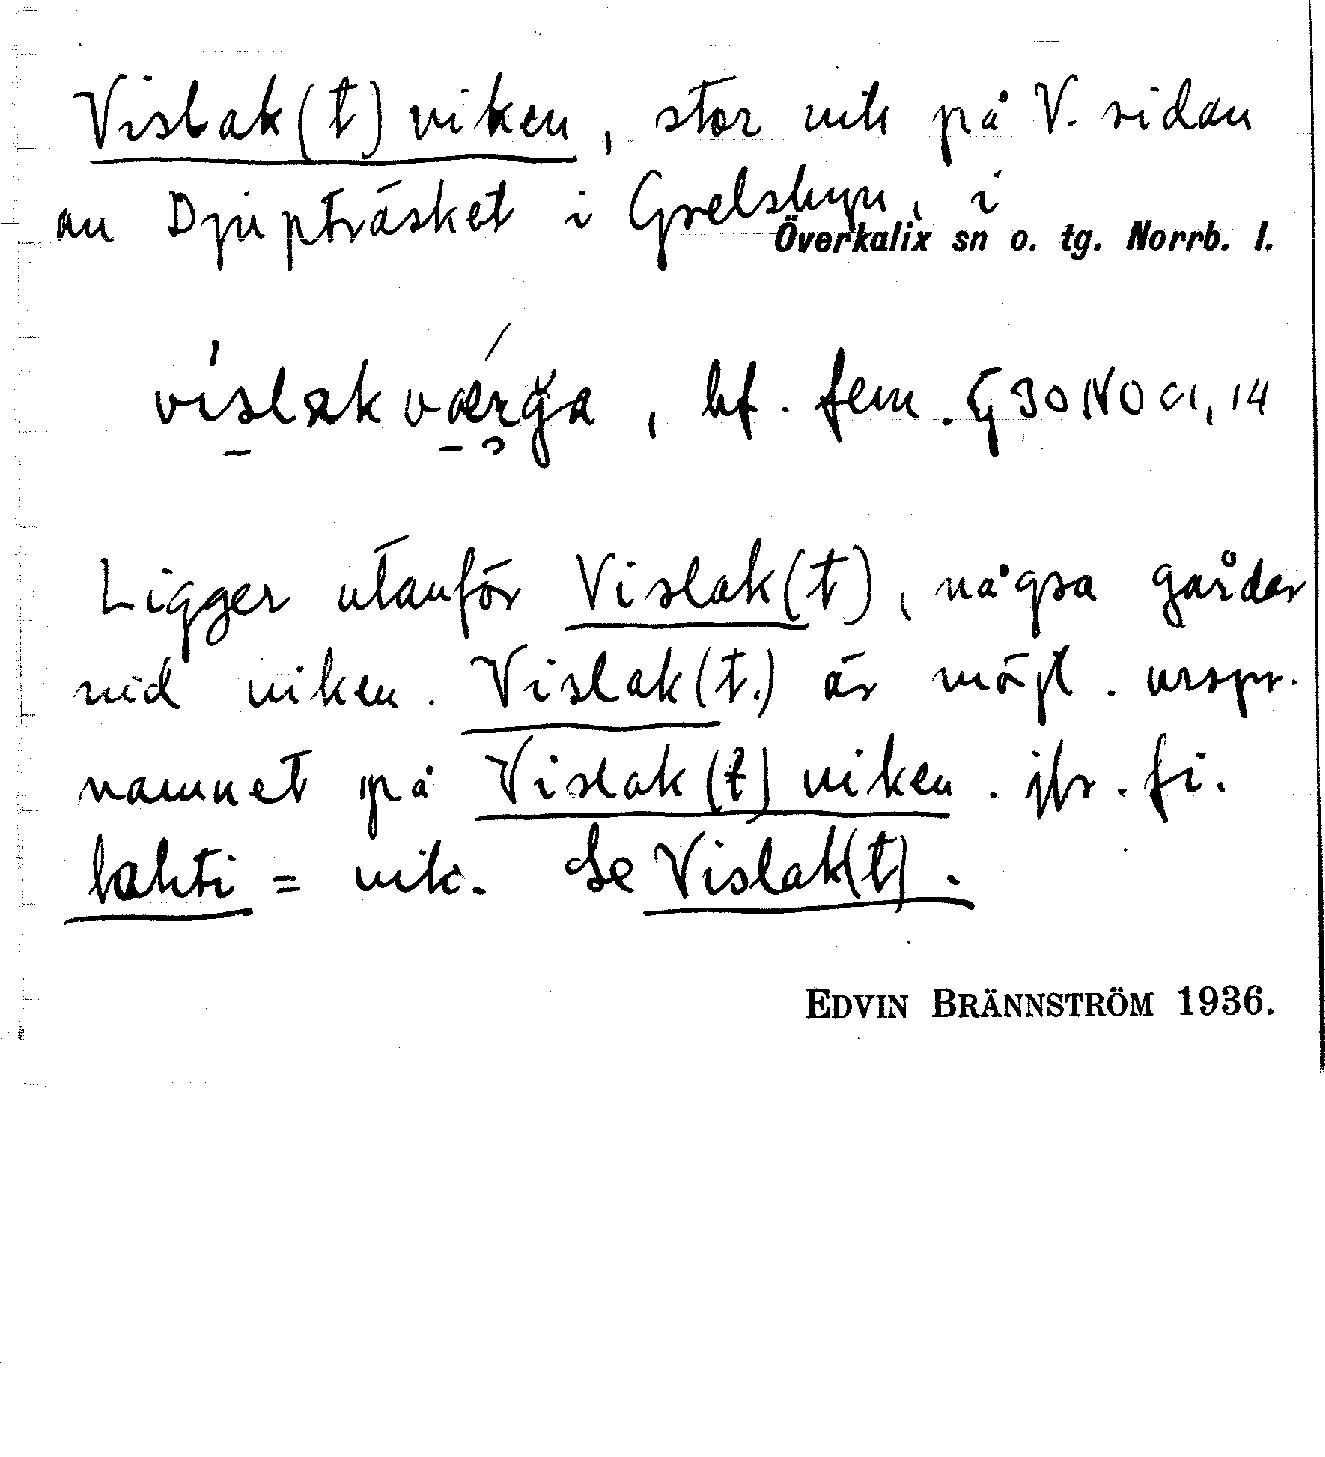 Vislak(t)viken, stor vik på V. sidan
av Djupträsket i Grelsbyn, i
Överkalix sn o. tg. Norrb. l.
víslakværga, bf. fem. G30NOCI,14
Ligger utanför Vislak(t), någsa gårder
vid viken. Vislak(t.) är möjl. urspr.
namnet på Vislak(t)viken. jfr. fi.
lahti = vik. Se Vislak(t).
EDVIN BRÄNNSTRÖM 1936.